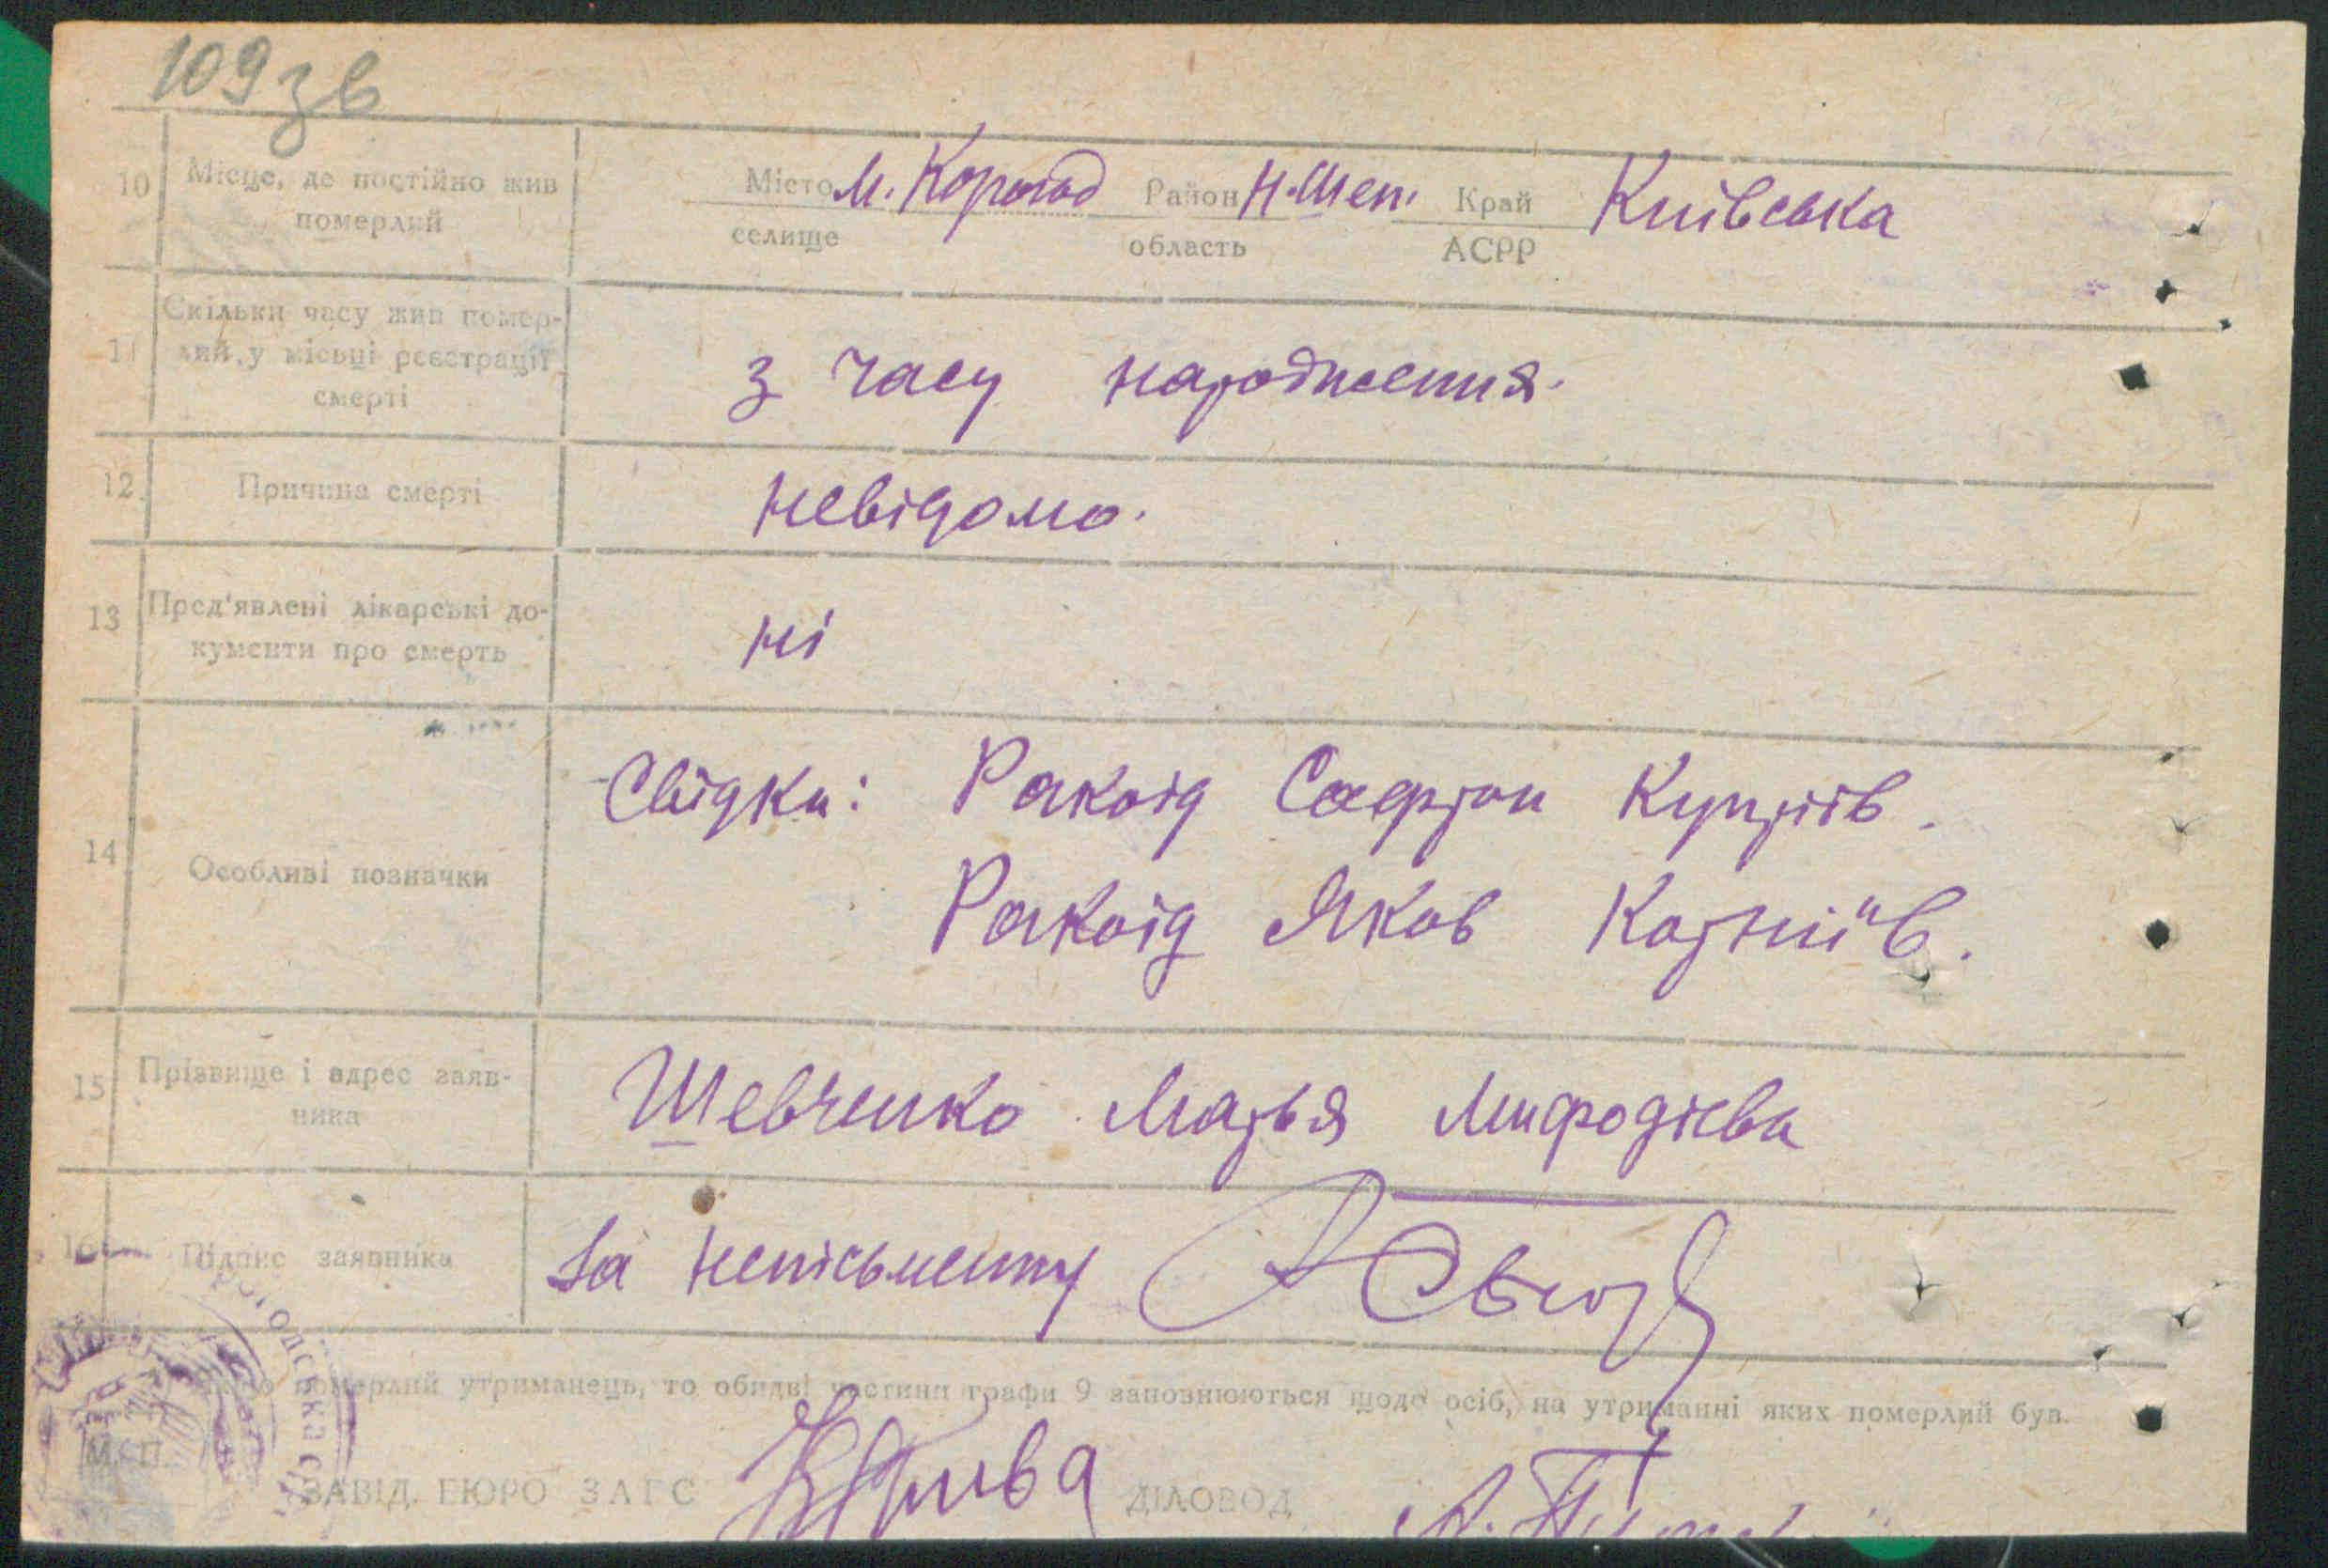 109 зв
10 Місце, де постійно жив Місто м. Корогод Район Н-Шеп. Край Київська
померлий селище область АСРР
Скільки часу жив помер-
11 лий у місьці реєстрації з часу народження.
смерті
12 Причина смерті невідомо.
13 Пред'явлені лікарські до- ні
кументи про смерть
Свідки: Ракоїд Сафрон Купріїв.
14 Особливі позначки Ракоїд Яков Корніїв.
15 Прізвище і адрес заяв- Шевченко Марья Мифодієва
ника
16 Підпис заявника за неписьменну
померлий утриманець, то обидві частини графи 9 заповнюються щодо осіб, на утриманні яких померлий був.
М. П.
ЗАВІД. БЮРО ЗАГС ДІЛОВОД